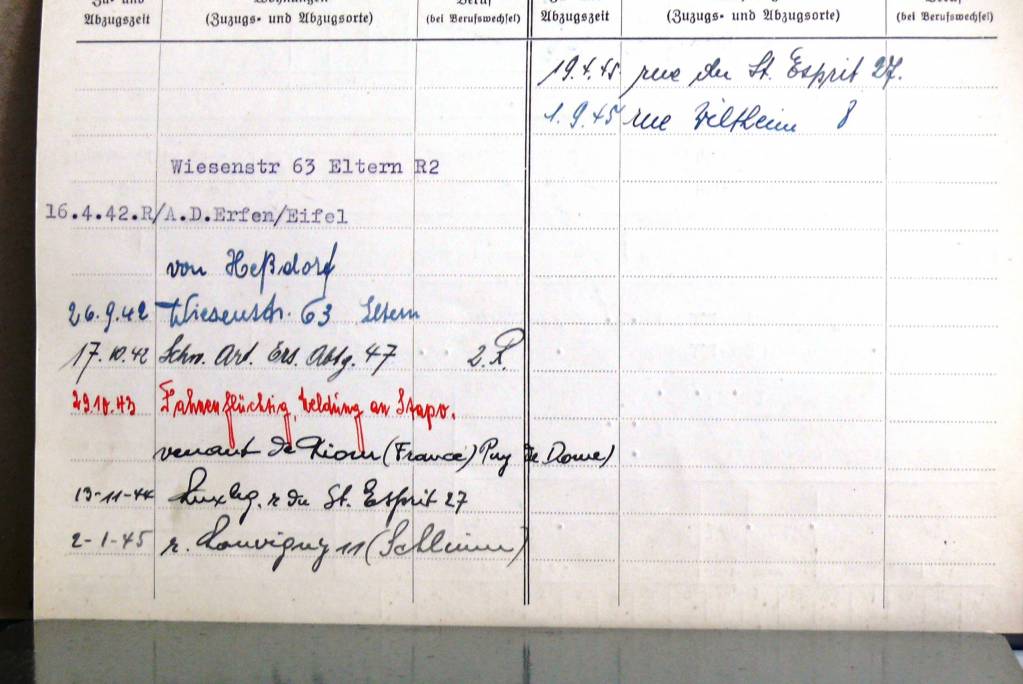 Zu- und Wohnungen Beruf
Abzugszeit (Zuzugs- und Abzugsorte) (bei Berufswechsel)
Wiesenstr 63 Eltern R2
16.4.42.R/A.D.Erfen/Eifel
von Heßdorf
26.9.42 Wiesenstr. 63 Eltern
17.10.42 Schw. Art. Ers. Abtg. 47 2.R.
29.10.43 Fahnenflüchtig, Meldung an Stapo.
venant de Riom (France) Puy de Dome)
13-11-44 Luxbg. r du St. Esprit 27
2-1-45 r. Louvigny 11 (Schlimm)
Abzugszeit (Zuzugs- und Abzugsorte) (bei Berufswechsel)
19.4.45 rue du St. Esprit 27.
1.9.45 rue Wiltheim 8